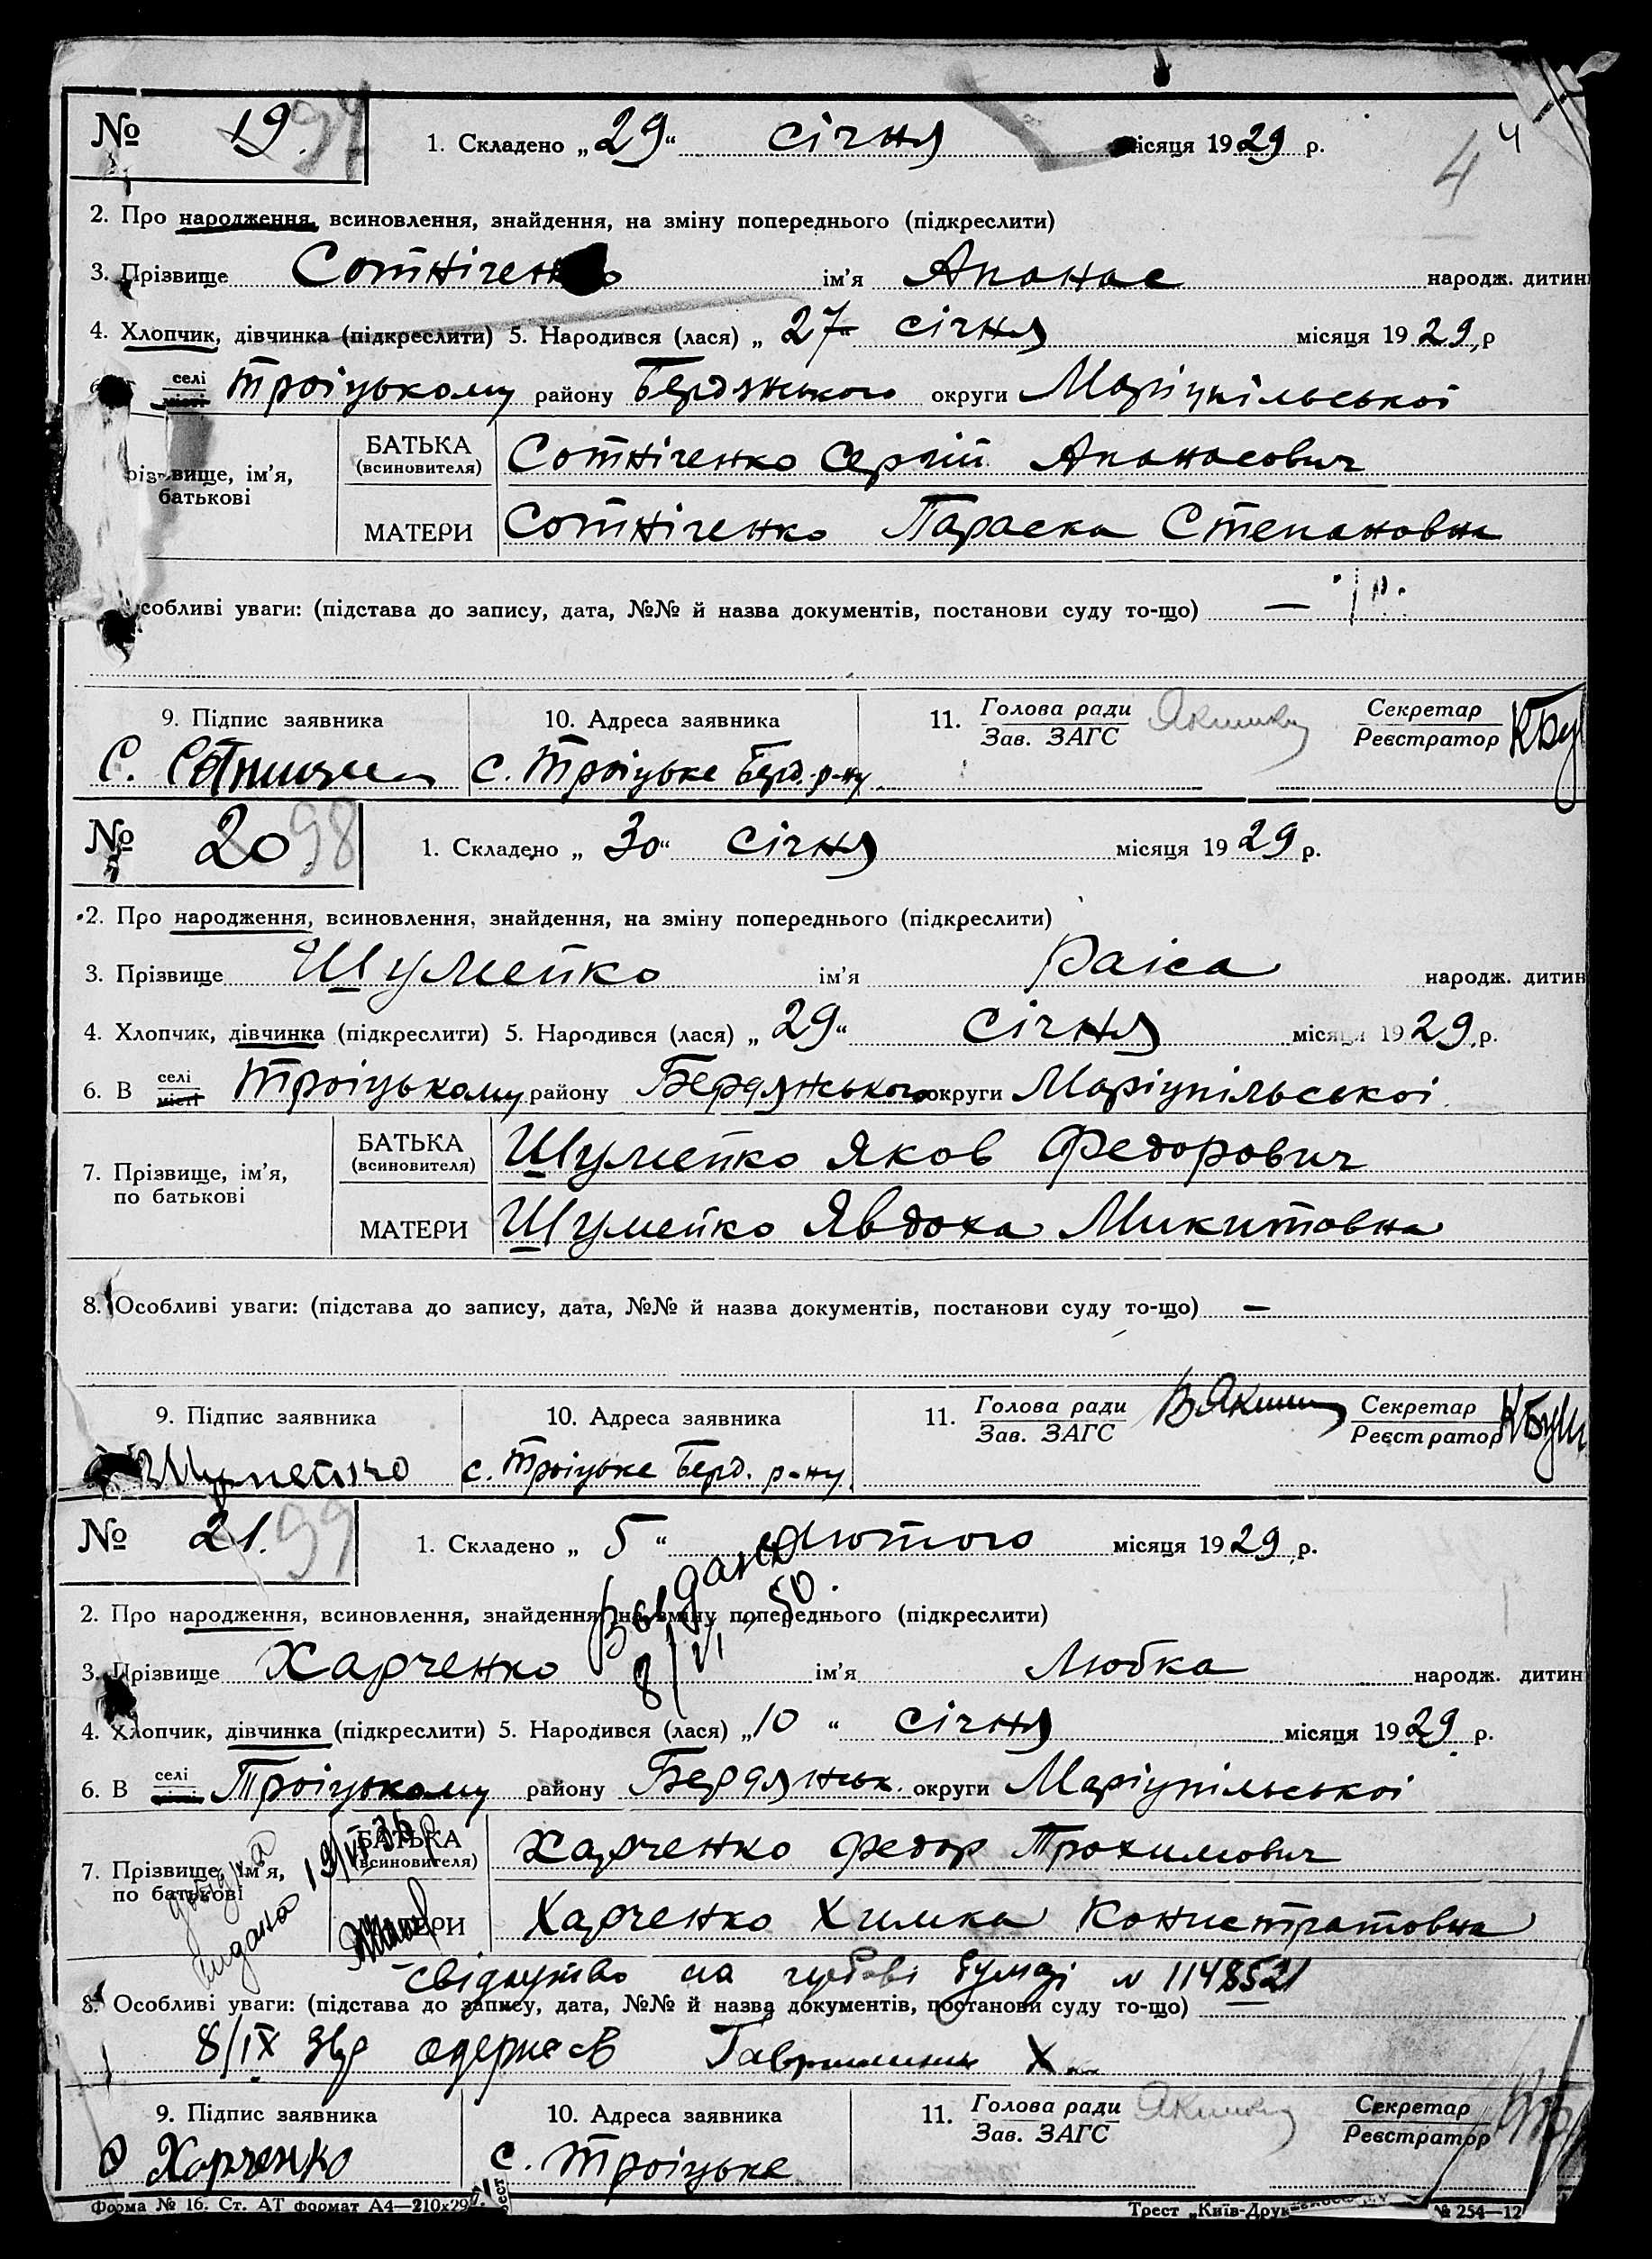 № 19. 97
1. Складено „29“ січня місяця 1929 р.
4 4
2. Про народження, всиновлення, знайдення, на зміну попереднього (підкреслити)
3. Прізвище Сотніченко ім’я Апанас народж. дитин
4. Хлопчик, дівчинка (підкреслити) 5. Народився (лася) „27“ січня місяця 1929 р
селі Троіцькому району Бердянського округи Маріупільськоі
місті
БАТЬКА (всиновителя) Сотніченко Сергій Апанасович
різвище, ім’я,
батькові
МАТЕРИ Сотніченко Параска Степановна
собливі уваги: (підстава до запису, дата, №№ й назва документів, постанови суду то-що) —
9. Підпис заявника 10. Адреса заявника 11. Голова ради Секретар
Зав. ЗАГС Реєстратор
С. с. Троіцьке Берд. р-ну
№ 20 98
1. Складено „30“ січня місяця 1929 р.
2. Про народження, всиновлення, знайдення, на зміну попереднього (підкреслити)
3. Прізвище Шумейко ім’я Раіса народж. дитин
4. Хлопчик, дівчинка (підкреслити) 5. Народився (лася) „29“ січня місяця 1929 р.
6. В селі Троіцькому району Бердянського округи Маріупільськоі
місті
БАТЬКА (всиновителя) Шумейко Яков Федорович
7. Прізвище, ім’я,
по батькові
МАТЕРИ Шумейко Явдоха Микитовна
8. Особливі уваги: (підстава до запису, дата, №№ й назва документів, постанови суду то-що) —
9. Підпис заявника 10. Адреса заявника 11. Голова ради Секретар
Зав. ЗАГС Реєстратор
Шумейко с. Троіцьке Берд. р-ну
№ 21. 99
1. Складено „5“ лютого місяця 1929 р.
Выдано
8/VI 50.
2. Про народження, всиновлення, знайдення, на зміну попереднього (підкреслити)
3. Прізвище Харченко ім’я Любка народж. дитин
4. Хлопчик, дівчинка (підкреслити) 5. Народився (лася) „10“ січня місяця 1929 р.
6. В селі Троіцькому району Бердянськ. округи Маріупільськоі
БАТЬКА (всиновителя) Харченко Федор Трохимович
7. Прізвище, ім’я,
по батькові
видана
МАТЕРИ Харченко Химка Конистратовна
свідоцтво на гербові бумазі № 1148521
8. Особливі уваги: (підстава до запису, дата, №№ й назва документів, постанови суду то-що)
8/IX
9. Підпис заявника 10. Адреса заявника 11. Голова ради Секретар
Зав. ЗАГС Реєстратор
Харченко с. Троіцьке
Форма № 16. Ст. АТ формат А4—210х297. Трест „Київ-Друк № 254—12